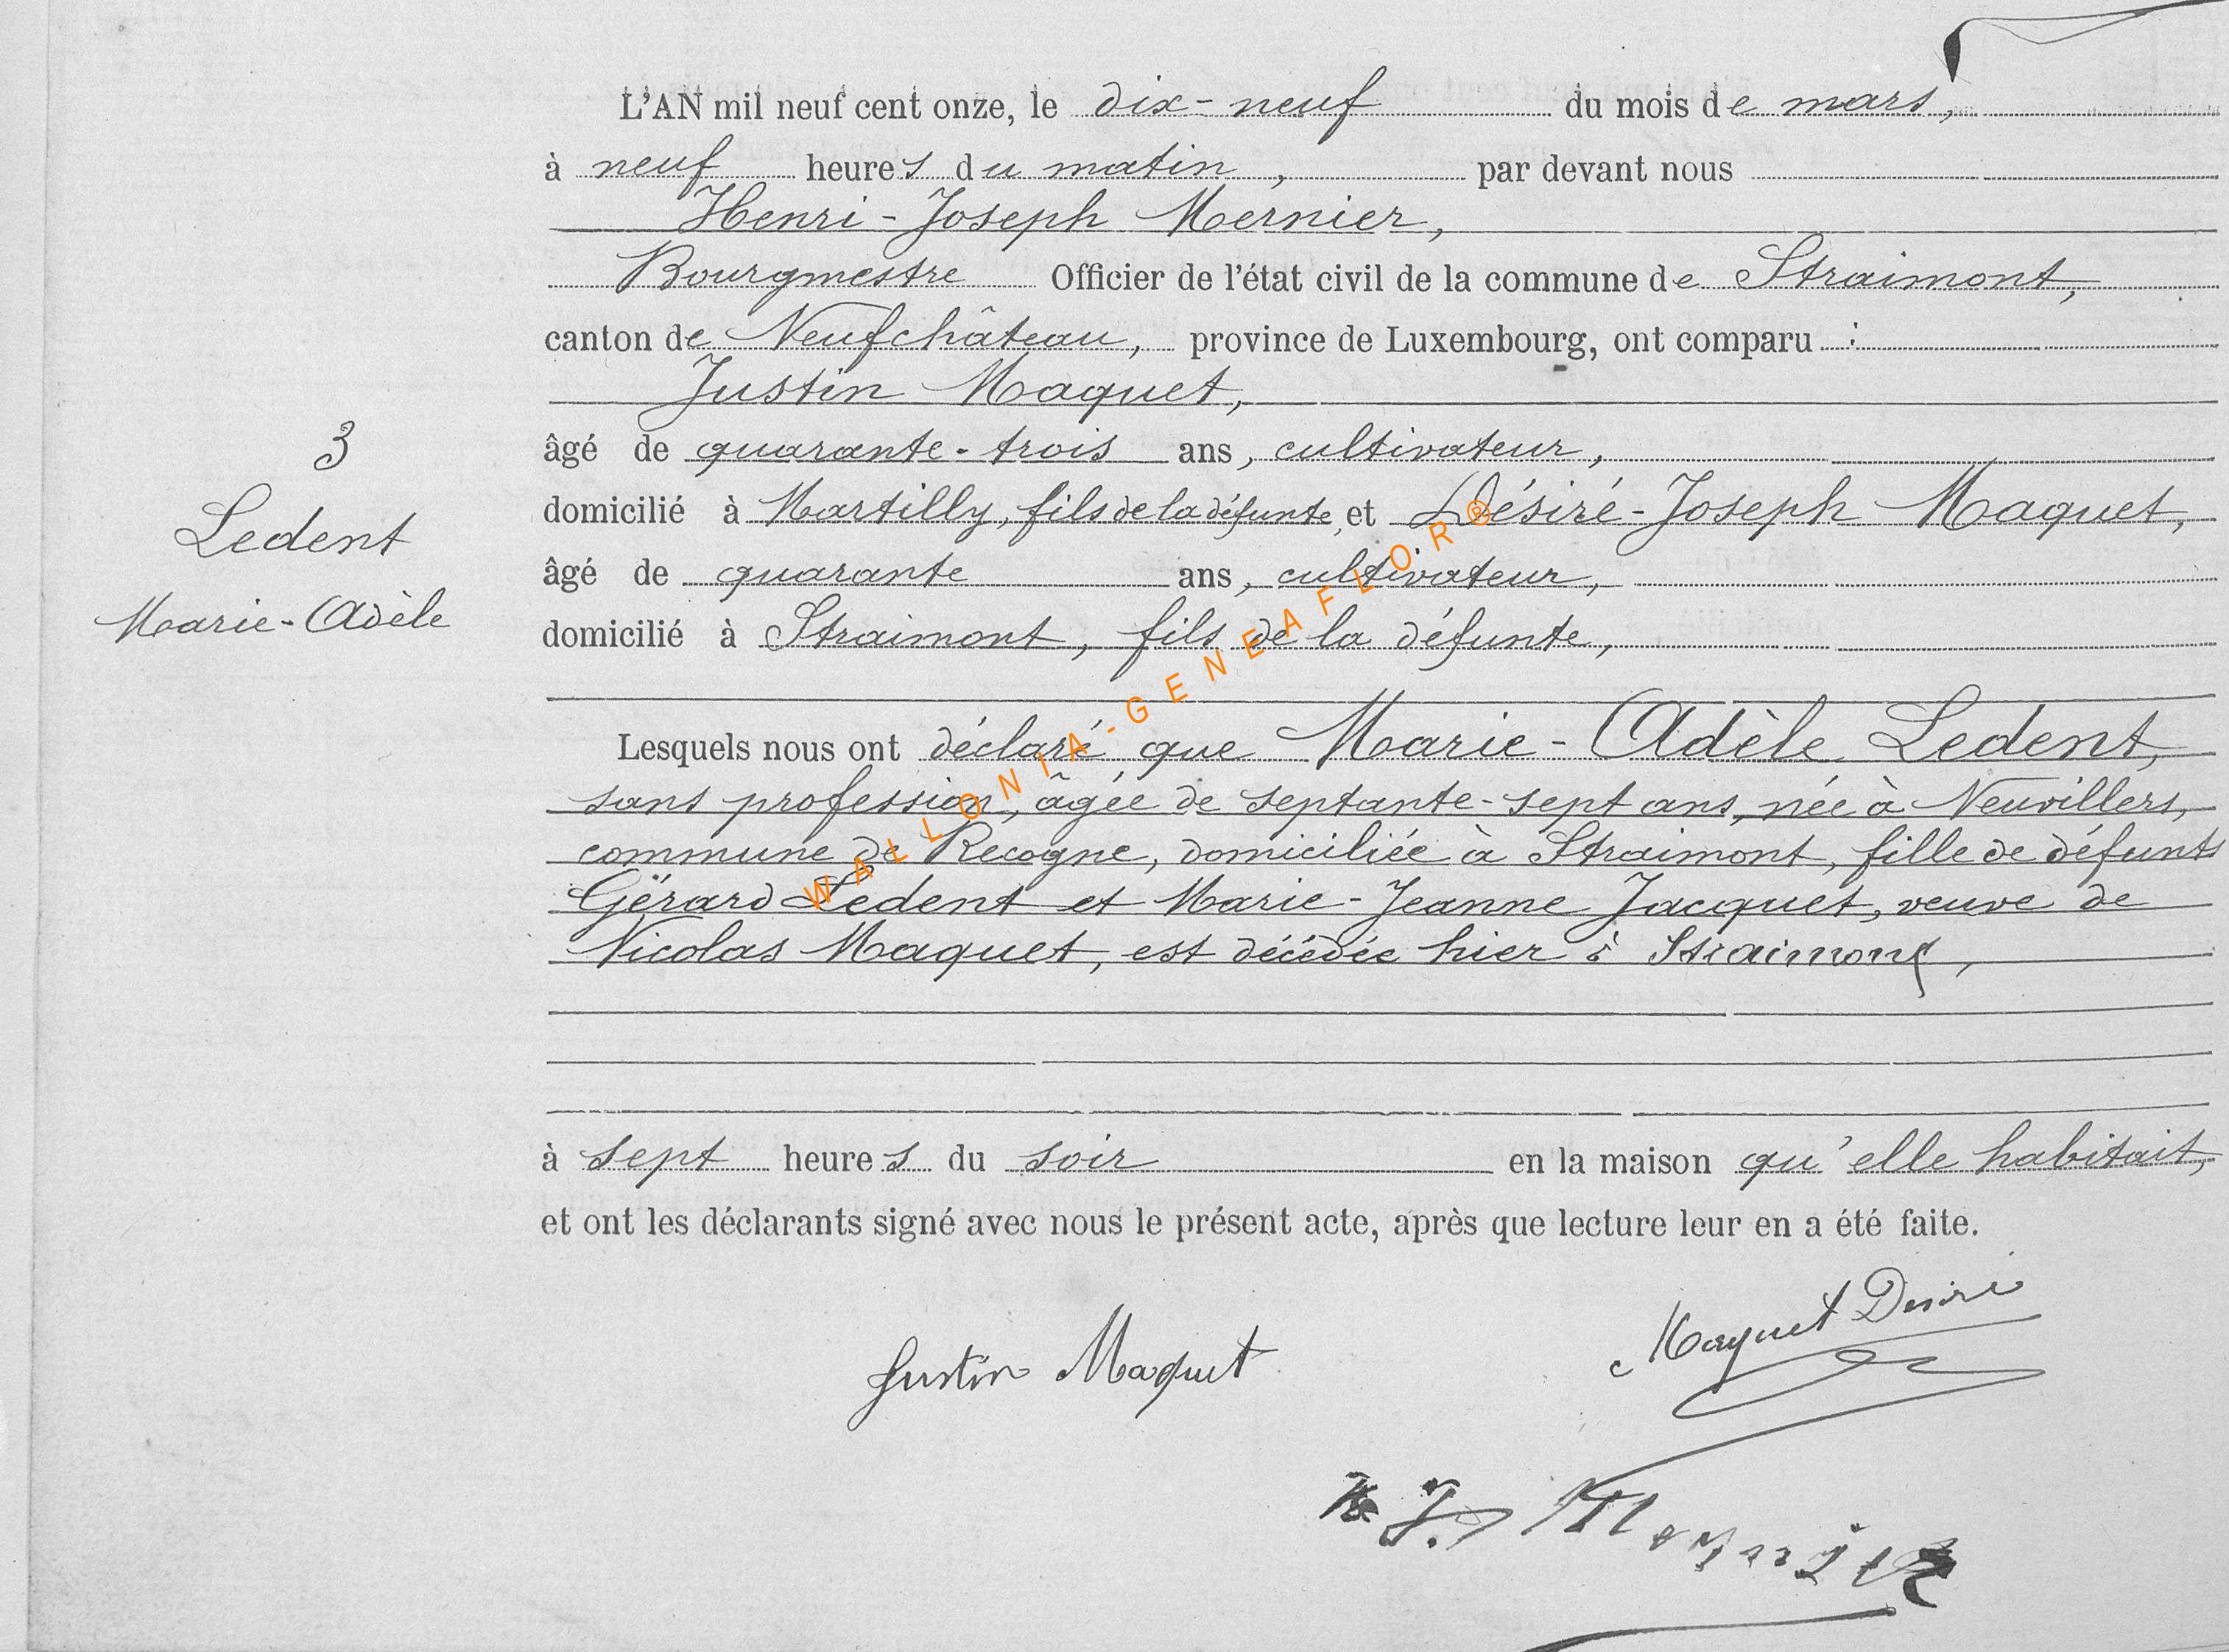 L'AN mil neuf cent onze, le dix-neuf du mois de mars,
à neuf heures du matin, par devant nous
Henri-Joseph Mernier,
Bourgmestre Officier de l'état civil de la commune de Straimont,
canton de Neufchâteau, province de Luxembourg, ont comparu :
Justin Maquet,
âgé de quarante-trois ans, cultivateur,
domicilié à Martilly, fils de la défunte, et Désiré-Joseph Maquet,
âgé de quarante ans, cultivateur,
domicilié à Straimont, fils de la défunte,
3
Ledent
Marie-Adèle
Lesquels nous ont déclaré que Marie-Adèle Ledent,
sans profession, âgée de septante-sept ans, née à Neuvillers,
commune de Recogne, domiciliée à Straimont, fille de défunts
Gérard Ledent et Marie-Jeanne Jacquet, veuve de
Nicolas Maquet, est décédée hier à Straimont,
à sept heures du soir en la maison qu'elle habitait,
et ont les déclarants signé avec nous le présent acte, après que lecture leur en a été faite.
Justin Maquet
Maquet Désiré
H. J. Mernier
WALLONIA-GENEAFLOR®